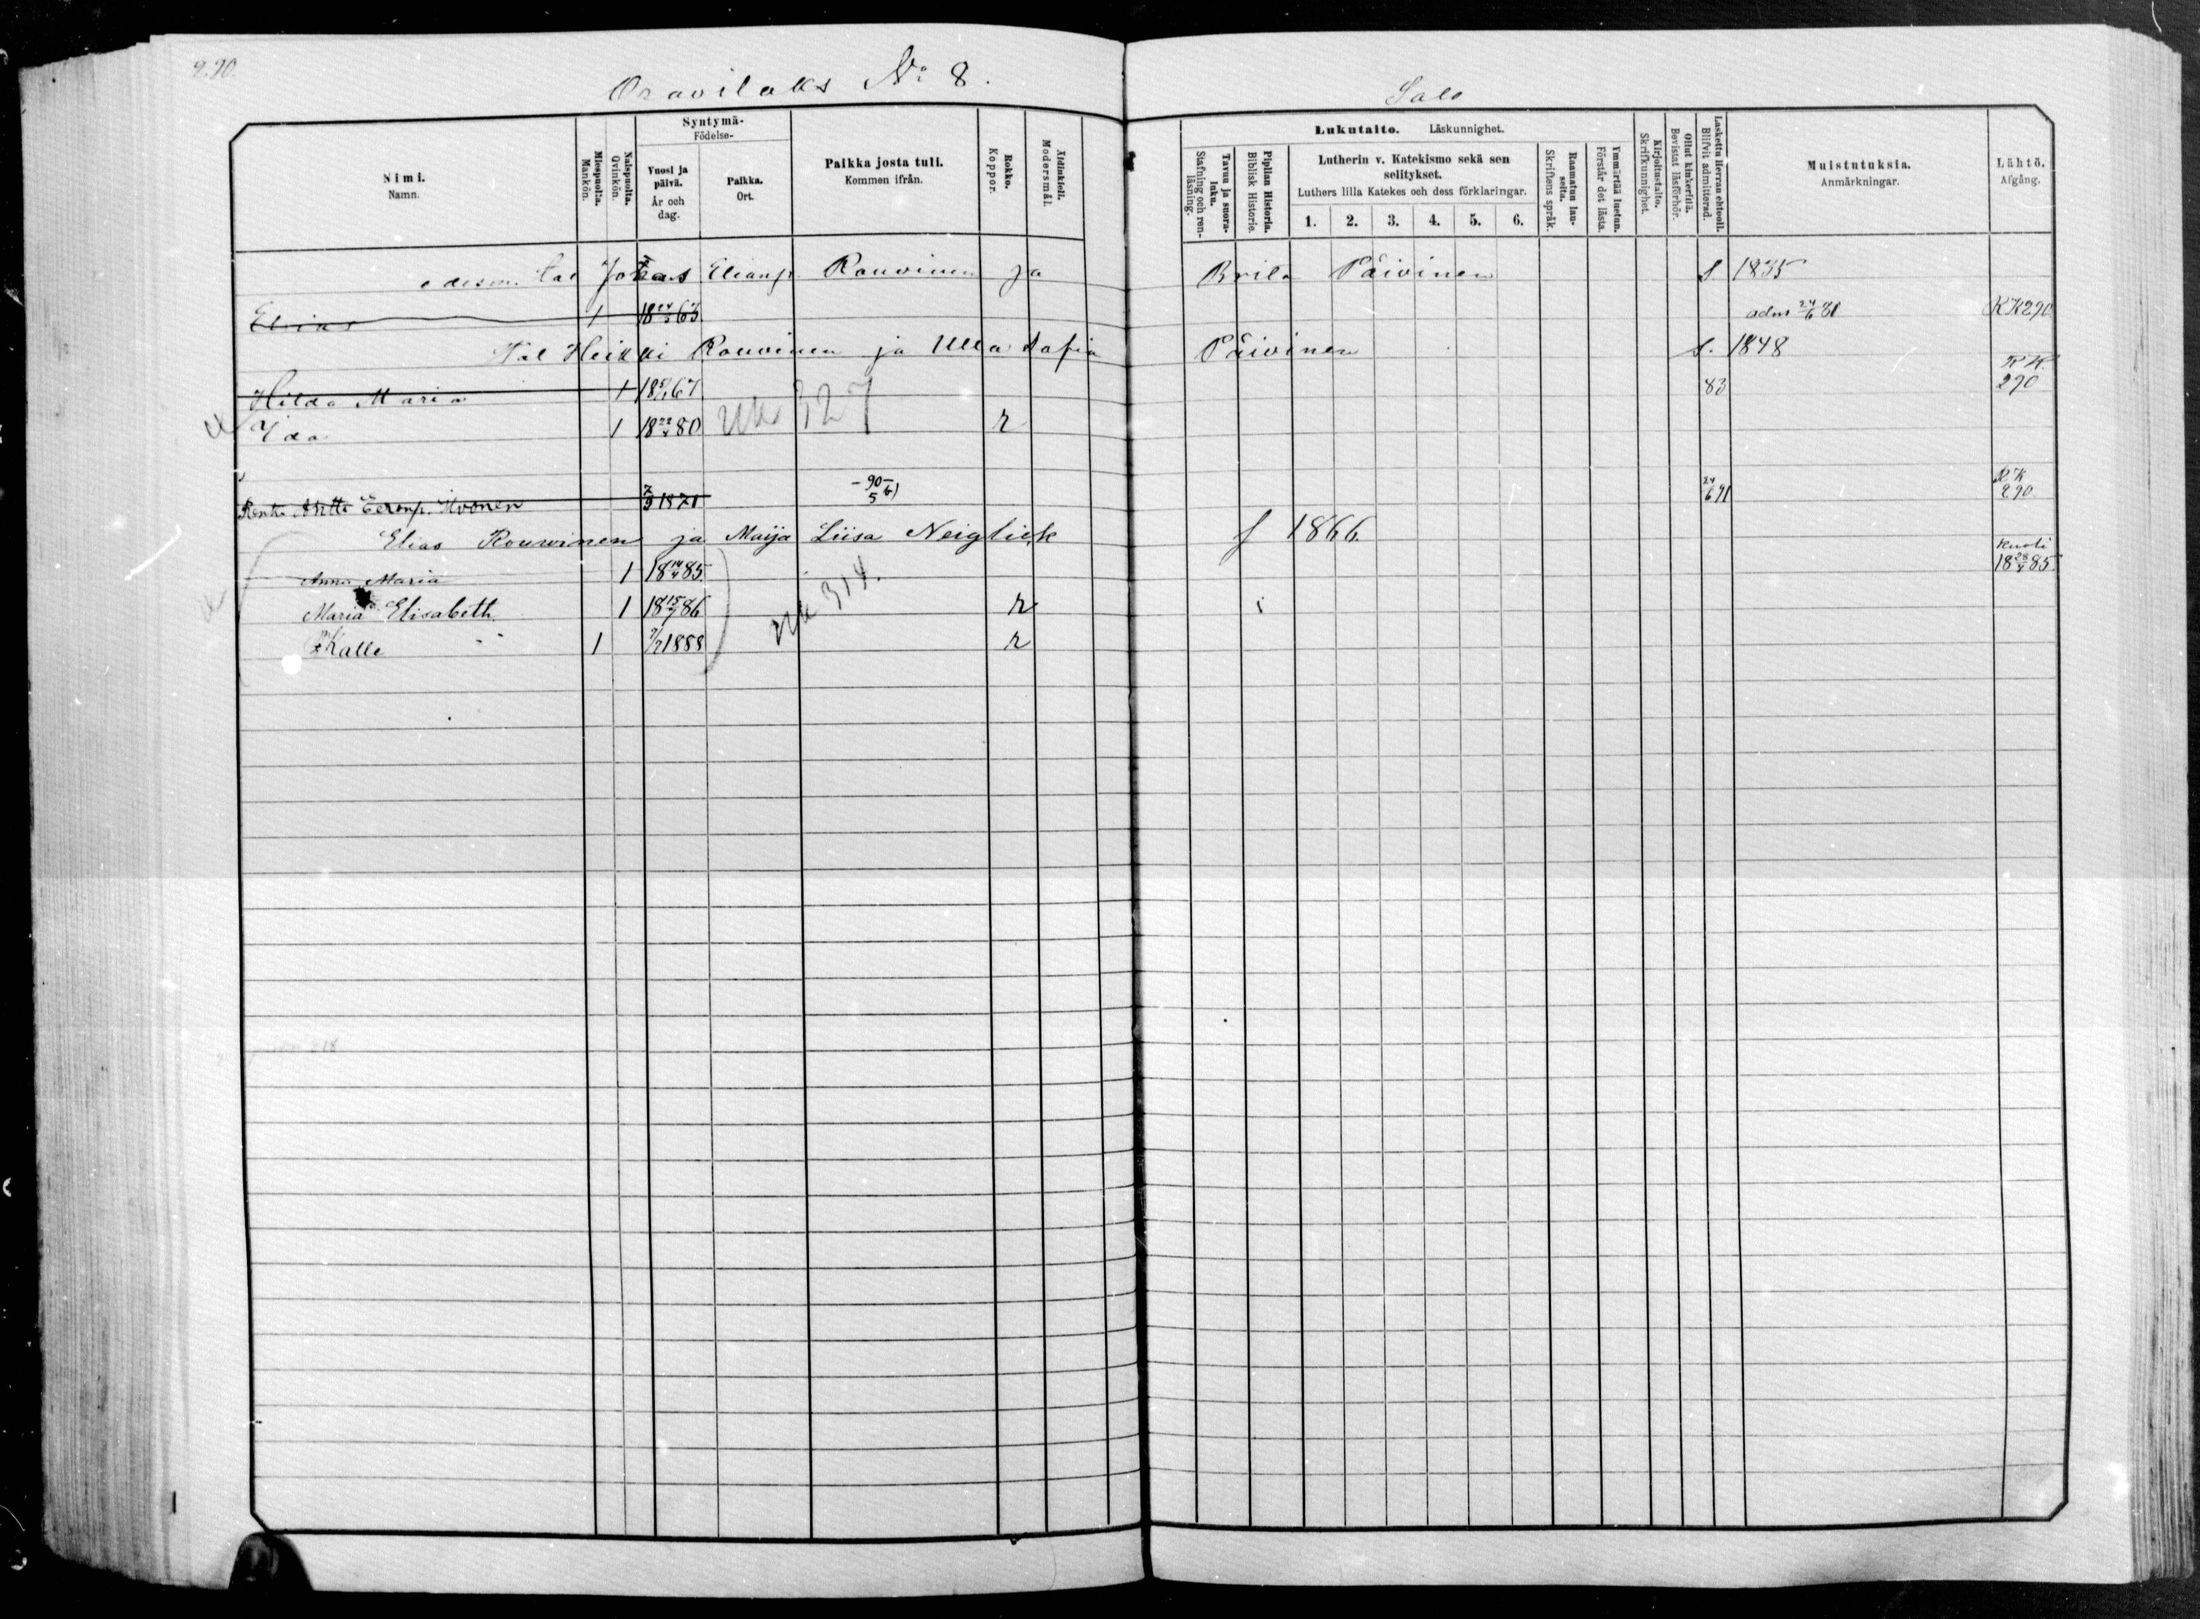 290.
Oravilaks № 8.
Salo
Nimi.
Namn.
Miespuolia.
Mankön.
Naispuolia.
Qvinkön.
Syntymä-
Födelse-
Vuosi ja päivä.
År och dag.
Paikka.
Ort.
Paikka josta tuli.
Kommen ifrån.
Rokko.
Koppor.
Äidinkieli.
Modersmål.
Lukutaito. Läskunnighet.
Tavuu ja suora-luku.
Stafning och ren-läsning.
Piplian Historia.
Biblisk Historie.
Lutherin v. Katekismo sekä sen selitykset.
Luthers lilla Katekes och dess förklaringar.
1. 2. 3. 4. 5. 6.
Raamatun lau-seita.
Skriftens språk.
Ymmärtää luetun.
Förstår det lästa.
Kirjoitustaito.
Skrifkunnighet.
Ollut kinkerillä.
Bevistat läsförhör.
Laskettu Herran ehtooll.
Blifvit admitterad.
Muistutuksia.
Anmärkningar.
Lähtö.
Afgång.
Eliasp. Rouvinen ja Brita Päivinen s. 1835
Elias 1 18 24/3 63 adm 24/6 81 KK290
Tal Heikki Rouvinen ja Ulla Sofia Päivinen s. 1848
Hilda Maria 1 18 67 83 KK. 290
Ida 1 18 80 327 r
Antti Eeronp. 1871 -90- 5 6) 24/6 91 RK 290
Elias Rouvinen ja Maija Liisa Neiglick f 1866
Anna Maria 1 18 14/4 85 kuoli 18 28/4 85
Maria Elisabeth 1 18 15/7 86 314. r i
Kalle 1 7/7 1888 r